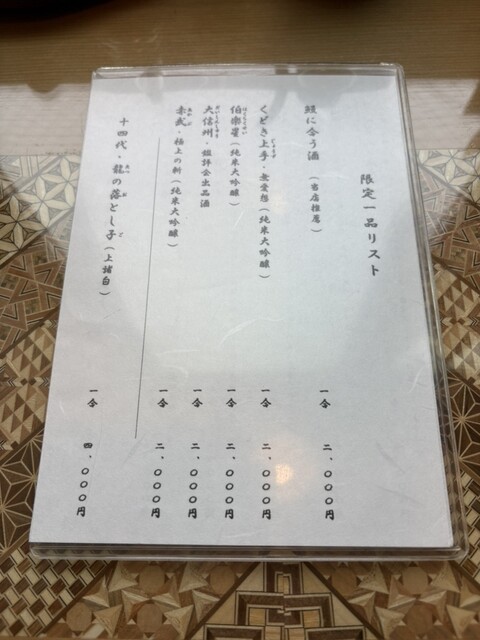 限定一品リスト
鮨に合う酒 (当店推薦) 一合 二、〇〇〇円
くどき上手・無愛想(純米大吟醸) 一合 二、〇〇〇円
伯楽星(純米大吟醸) 一合 二、〇〇〇円
大信州・鑑評会出品酒 一合 二、〇〇〇円
赤武・極上の斬(純米大吟醸) 一合 二、〇〇〇円
十四代・龍の落とし子(上諸白) 一合 四、〇〇〇円